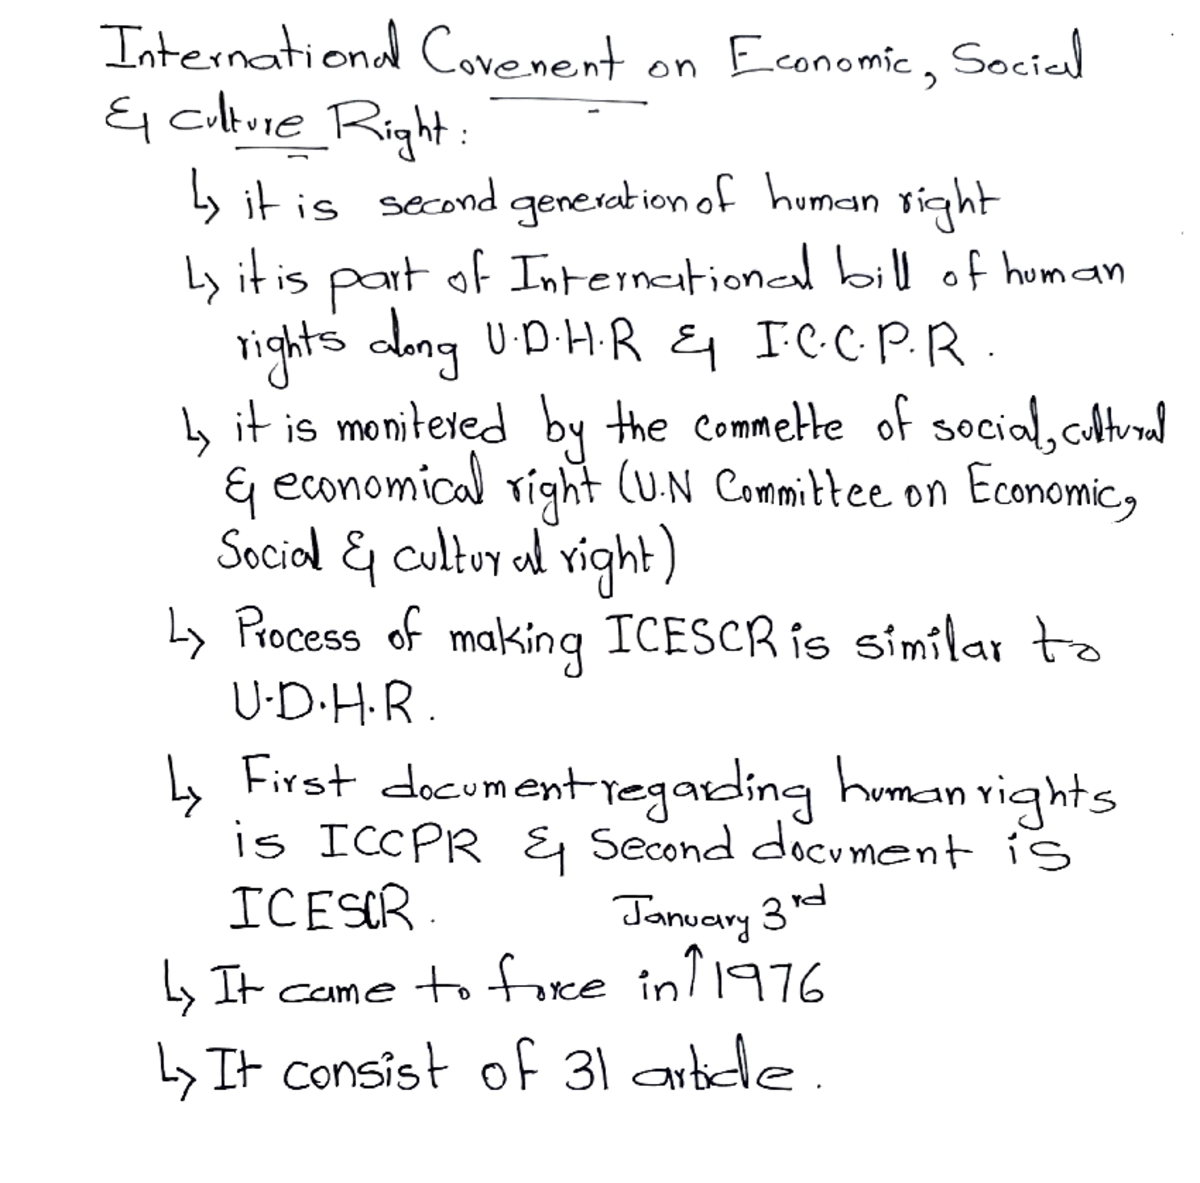 International Covenent on Economic, Social
& Culture Right:
↳ it is second generation of human right
↳ it is part of International bill of human
rights along U.D.H.R & I.C.C.P.R.
↳ it is monitered by the commette of social, cultural
& economical right (U.N Committee on Economic,
Social & cultural right)
↳ Process of making ICESCR is similar to
U.D.H.R.
↳ First document regarding human rights
is ICCPR & Second document is
ICESCR.
January 3rd
↳ It came to force in ↑ 1976
↳ It consist of 31 article.